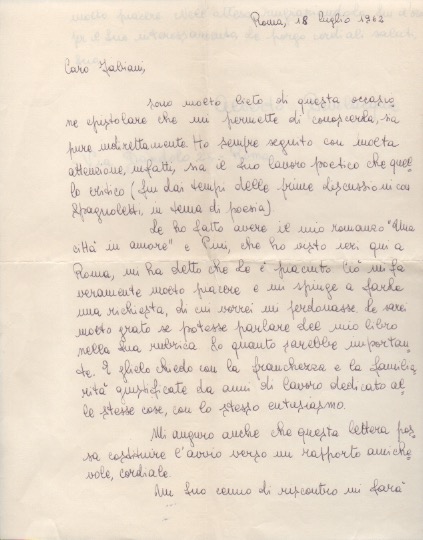 Roma, 18 luglio 1962
Caro Fabiani,
sono molto lieto di questa occasio
ne epistolare che mi permette di conoscerla, sia
pure indirettamente. Ho sempre seguito con molta
attenzione, infatti, sia il suo lavoro poetico che quel
lo critico (fin dai tempi delle prime discussioni con
Spagnoletti, in tema di poesia).
Le ho fatto avere il mio romanzo "Una
città in amore" e Pini, che ho visto ieri qui a
Roma, mi ha detto che Le è piaciuto. Ciò mi fa
veramente molto piacere e mi spinge a farLe
una richiesta, di cui vorrei mi perdonasse. Le sarei
molto grato se potesse parlare del mio libro
nella Sua rubrica. So quanto sarebbe importan
te. E glielo chiedo con la franchezza e la familia
rità giustificate da anni di lavoro dedicato al
le stesse cose, con lo stesso entusiasmo.
Mi auguro anche che questa lettera pos
sa costituire l'avvio verso un rapporto amiche
vole, cordiale.
Un Suo cenno di riscontro mi farà